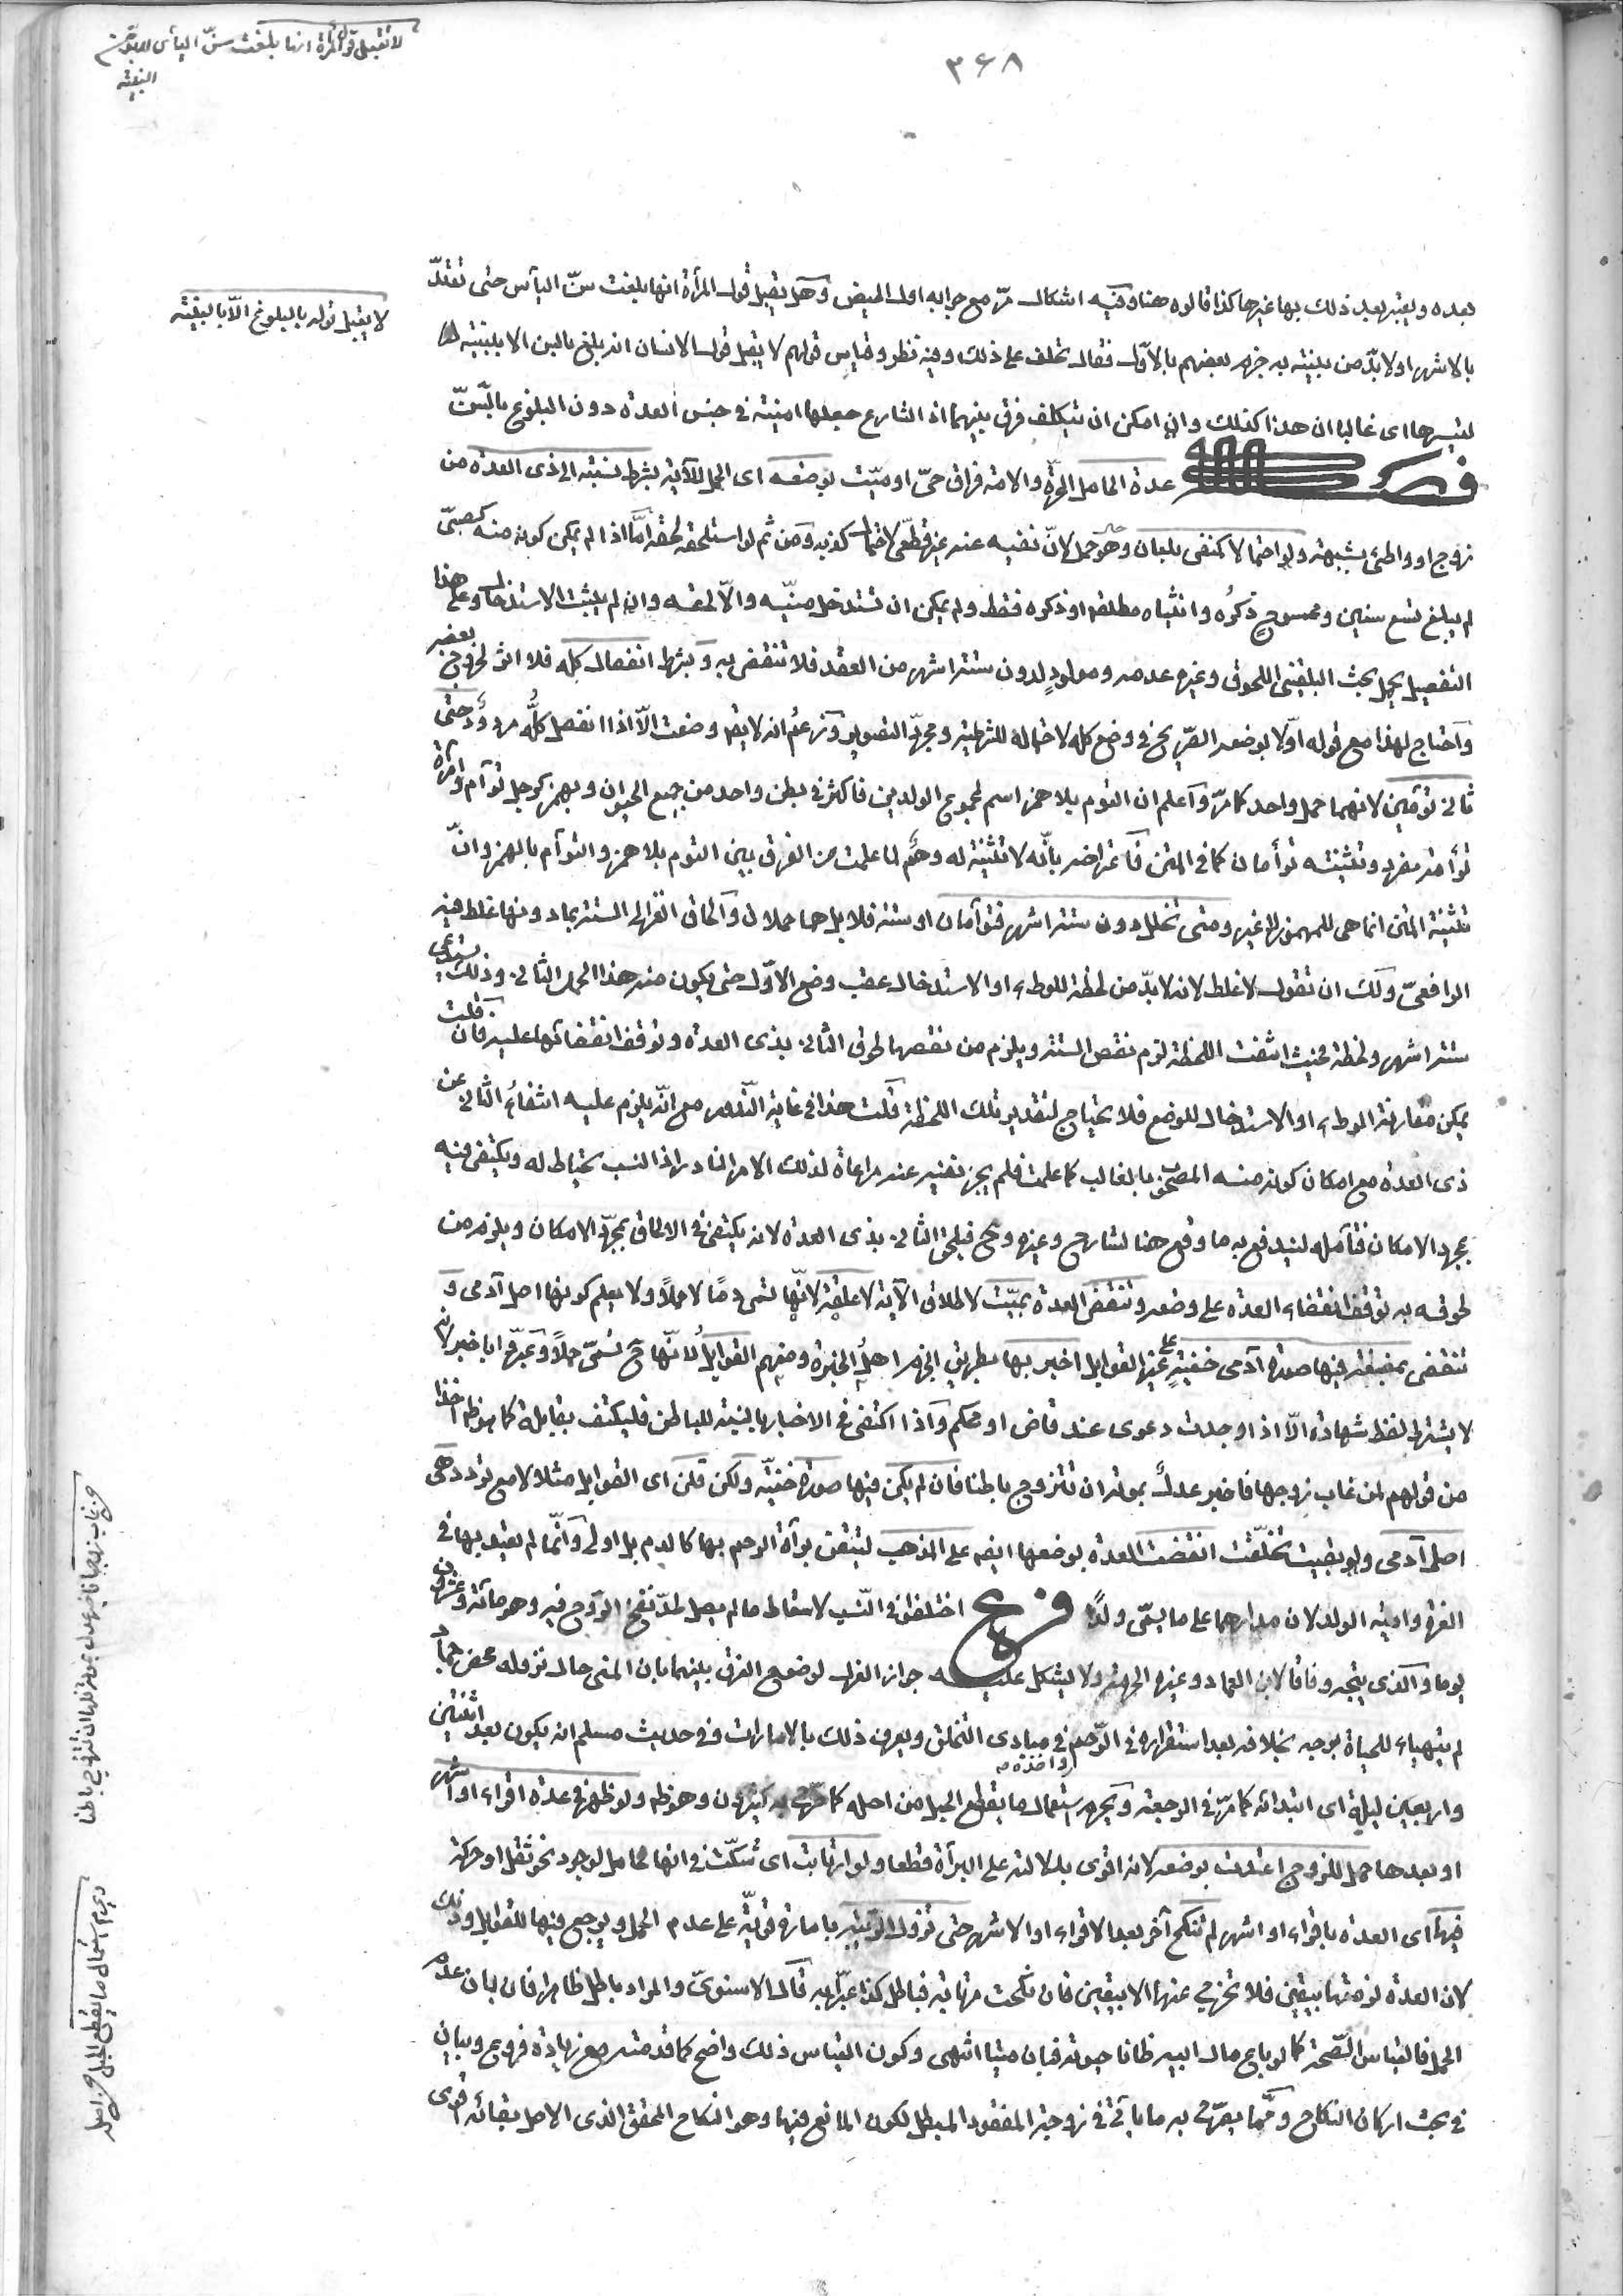 ٣٦٨
لا تقبل قول المرأة انها بلغت سنّ اليأس الا
البينة
بعده ويعتبر بعد ذلك بها غيرها كذا قالوه هنا وفيه اشكال مرّ مع جوابه اول الحيض وهل يقبل قول المرأة انها بلغت سنّ اليأس حتى تعتدّ
لا يقبل قوله بالبلوغ الاّ بالبينة
بالاشهر او لا بدّ من بينة به جزم بعضهم بالاوّل فقال تحلف على ذلك وفيه نظر وقياس قولهم لا يقبل قول الانسان انه بلغ بالسن الا ببينة
لتيسرها اى غالبا ان هذا كذلك وان امكن ان يتكلف فرق بينهما اذ الشارع جعلها امينة فى جنس العدة دون البلوغ بالسّنّ
فصل عدة الحامل الحرّة والامة فراق حىّ او ميّت بوضعه اى الحمل للآية بشرط نسبته الى ذى العدة من
زوج او واطئ بشبهة ولو احتمالا كمنفى بلعان وهو حمل لانّ نفيه عنه غير قطعىّ لاحتمال كذبه ومن ثم لو استلحقه لحقه امّا اذا لم يمكن كونه منه كصبىّ
لم يبلغ تسع سنين وممسوحٍ ذكرُه وانثياه مطلقا او ذكره فقط ولم يمكن ان تستدخل منيّه والاّ لحقه وان لم يثبت الاستدخال وعلى هذا
التفصيل يحمل بحث البلقينى اللحوق وغيره عدمه ومولودٍ لدون ستة اشهر من العقد فلا تنقضى به وبشرط انفصال كله فلا اثر لخروج بعضه
واحتاج لهذا مع قوله اوّلا بوضعه الصّريح فى وضع كله لاحتماله للشرطية ومجرّد التصوير وزعمُ انه لا يقال وضعت الاّ اذا انفصل كلُّه مردودٌ حتى
ثانى توأمين لانهما حمل واحد كما مرّ واعلم ان التوم بلا همز اسم لمجموع الولدين فاكثر فى بطن واحد من جميع الحيوان وبهمز كرجل توأم وامرأة
توأمة مفرد وتثنيته توأمان كما فى المتن فاعتراضه بانّه لا تثنية له وهمٌ لما علمت من الفرق بين التوم بلا همز والتوأم بالهمز وانّ
تثنية المتن انما هى للمهموز لا غير ومتى تخلل دون ستة اشهر فتوأمان او ستة فلا بل هما حملان والحاق الغزالى الستة بما دونها غلطه فيه
الرافعىّ ولك ان تقول لا غلط لانه لا بدّ من لحظة للوطء او الاستدخال عقب وضع الاوّل حتى يكون منه هذا الحمل الثانى وذلك يستدعى
ستة اشهر ولحظة فحيث انتفت اللحظة لزم نقص الستة ويلزم من نقصها لحوق الثانى بذى العدة وتوقف انقضائها عليه فان قلت
يمكن مقارنة الوطء او الاستدخال للوضع فلا يحتاج لتقدير تلك اللحظة قلت هذا فى غاية النّدور مع انّه يلزم عليه انتفاء الثانى عن
ذى العدة مع امكان كونه منه المصحوب بالغالب كما علمت فلم يجز نفيه عنه مراعاة لذلك الامر النادر اذ النسب يحتاط له ويكتفى فيه
بمجرد الامكان فتأمله ليندفع به ما وقع هنا لشارح وغيره وح فيلحق الثانى بذى العدة لانه يكتفى فى الالحاق بمجرّد الامكان ويلزم من
لحوقه به توقف انقضاء العدة على وضعه وتنقضى العدة بميّت لاطلاق الآية لا علقة لانّها تسمى دمًا لا حملاً ولا يعلم كونها اصل آدمى و
تنقضى بمضغة فيها صورة آدمى خفيّةٍ على غير القوابل اخبر بها بطريق الجزم اهلُ الخبرة ومنهم القوابلُ لانّها ح تسمّى حملاً وعبرّوا باخبر لانه
لا يشترط لفظ شهادة الاّ اذا وجدت دعوى عند قاض او محكم واذا اكتفى فى الاخبار بالنسبة للباطن فليكتف بقابلة كما هو ظ اخذا
من قولهم لمن غاب زوجها فاخبر عدلٌ بموته ان تتزوج باطنا فان لم يكن فيها صورة خفيّة ولكن قلن اى القوابل مثلا لا مع تردد هى
اصل آدمى ولو بقيت تخلّقت انقضت العدة بوضعها ايضا على المذهب لتيقن برآة الرحم بها كالدم بل اولى وانّما لم يعتد بها فى
الغرة وامية الولد لان مدارهما على ما يسمّى ولدًا فرع اختلفوا فى التّسبب لاسقاط ما لم يصل لحدّ نفخ الرّوح فيه وهو مائة وعشرون
يوما والّذى يتجه وفاقا لابن العماد وغيره الحرمة ولا يشكل عليه جواز العزل لوضوح الفرق بينهما بان المنى حال نزوله محض جماد
لم يتهيأ للحياة بوجه بخلافه بعد استقراره فى الرّحم واخذه فى مبادى التخلق ويعرف ذلك بالامارات وفى حديث مسلم انه يكون بعد اثنتين
واربعين ليلة اى ابتدائه كما مرّ فى الرجعة ويحرم استعمال ما يقطع الحبل من اصله كما صرّح به كثيرون وهو ظ ولو ظهر فى عدة اقراء او اشهر
او بعدها حمل للزوج اعتدت بوضعه لانه اقوى بدلالته على البرآة قطعا ولو ارتابت اى شكّت فى انها حامل لوجود نحو ثقل او حركة
فيها اى العدة باقراء او اشهر لم تنكح آخر بعد الاقراء او الاشهر حتى تزول الرّيبة بامارة قويّة على عدم الحمل ويرجع فيها للقوابل وذلك
لان العدة لزمتها بيقين فلا تخرج عنها الا بيقين فان نكحت مرتابة فباطل كذا عبّر به قال الاسنوىّ والمراد باطل ظاهرا فان بان عدم
الحمل فالقياس الصّحة كما لو باع مال ابيه ظانا حيوته فبان ميتا انتهى وكون القياس ذلك واضح كما قدمته مع زيادة فروع وبيان
فى بحث اركان النكاح وممّا يصرّح به ما يأتى فى زوجة المفقود المبطل لكون المانع فيها وهو النكاح المحقق الذى الاصل بقائه اقوى
من غاب زوجها فاخبر عدل بموته فلها ان تتزوج باطنا
ويحرم استعمال ما يقطع الحبل من اصله